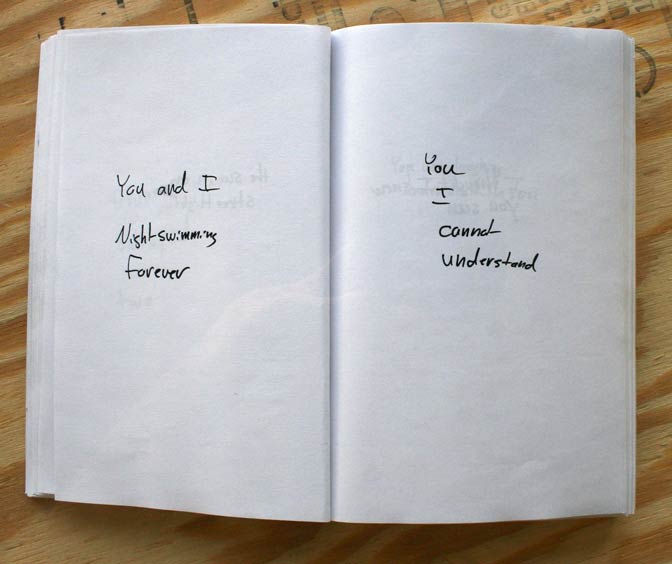 You and I
Nightswimming
Forever
You
I
cannot
understand